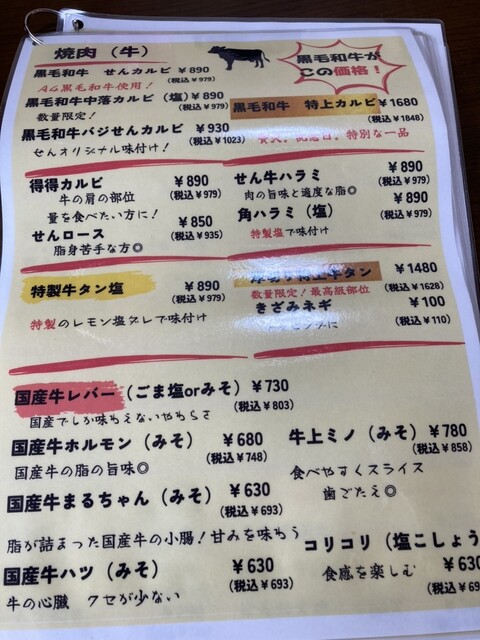 焼肉（牛）
黒毛和牛が
この価格！
黒毛和牛 せんカルビ ￥890
（税込￥979）
A4黒毛和牛使用！
黒毛和牛中落カルビ（塩）￥890
（税込￥979）
数量限定！
黒毛和牛 特上カルビ ￥1680
（税込￥1848）
特別な一品
黒毛和牛バジせんカルビ ￥930
（税込￥1023）
せんオリジナル味付け！
得得カルビ ￥890
（税込￥979）
牛の肩の部位
量を食べたい方に！
せんロース ￥850
（税込￥935）
脂身苦手な方◎
せん牛ハラミ ￥890
（税込￥979）
肉の旨味と適度な脂◎
角ハラミ（塩） ￥890
（税込￥979）
特製塩で味付け
特製牛タン塩 ￥890
（税込￥979）
特製のレモン塩ダレで味付け
牛タン ￥1480
（税込￥1628）
数量限定！最高級部位
きざみネギ ￥100
（税込￥110）
国産牛レバー（ごま塩orみそ）￥730
（税込￥803）
国産でしか味わえないやわらさ
国産牛ホルモン（みそ） ￥680
（税込￥748）
国産牛の脂の旨味◎
牛上ミノ（みそ） ￥780
（税込￥858）
食べやすくスライス
歯ごたえ◎
国産牛まるちゃん（みそ） ￥630
（税込￥693）
脂が詰まった国産牛の小腸！甘みを味わう
コリコリ（塩こしょう
￥630
食感を楽しむ
国産牛ハツ（みそ） ￥630
（税込￥693）
牛の心臓 クセが少ない